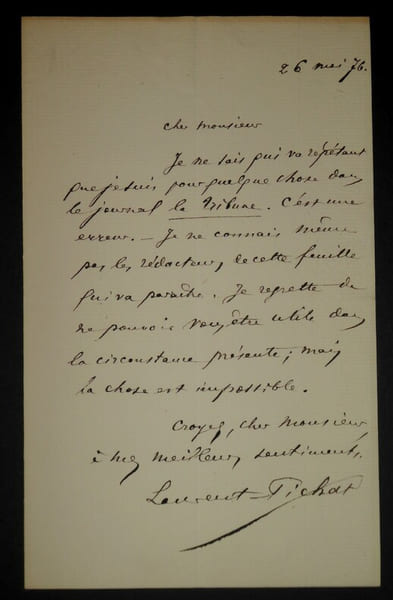 26 mai 76.
cher monsieur
Je ne sais qui va répétant
que je suis pour quelque chose dans
le journal la Tribune. C'est une
erreur. – Je ne connais même
pas les rédacteurs de cette feuille
qui va paraître. Je regrette de
ne pouvoir vous être utile dans
la circonstance présente ; mais
la chose est impossible.
Croyez, cher Monsieur,
à mes meilleurs sentiments.
Laurent-Pichat